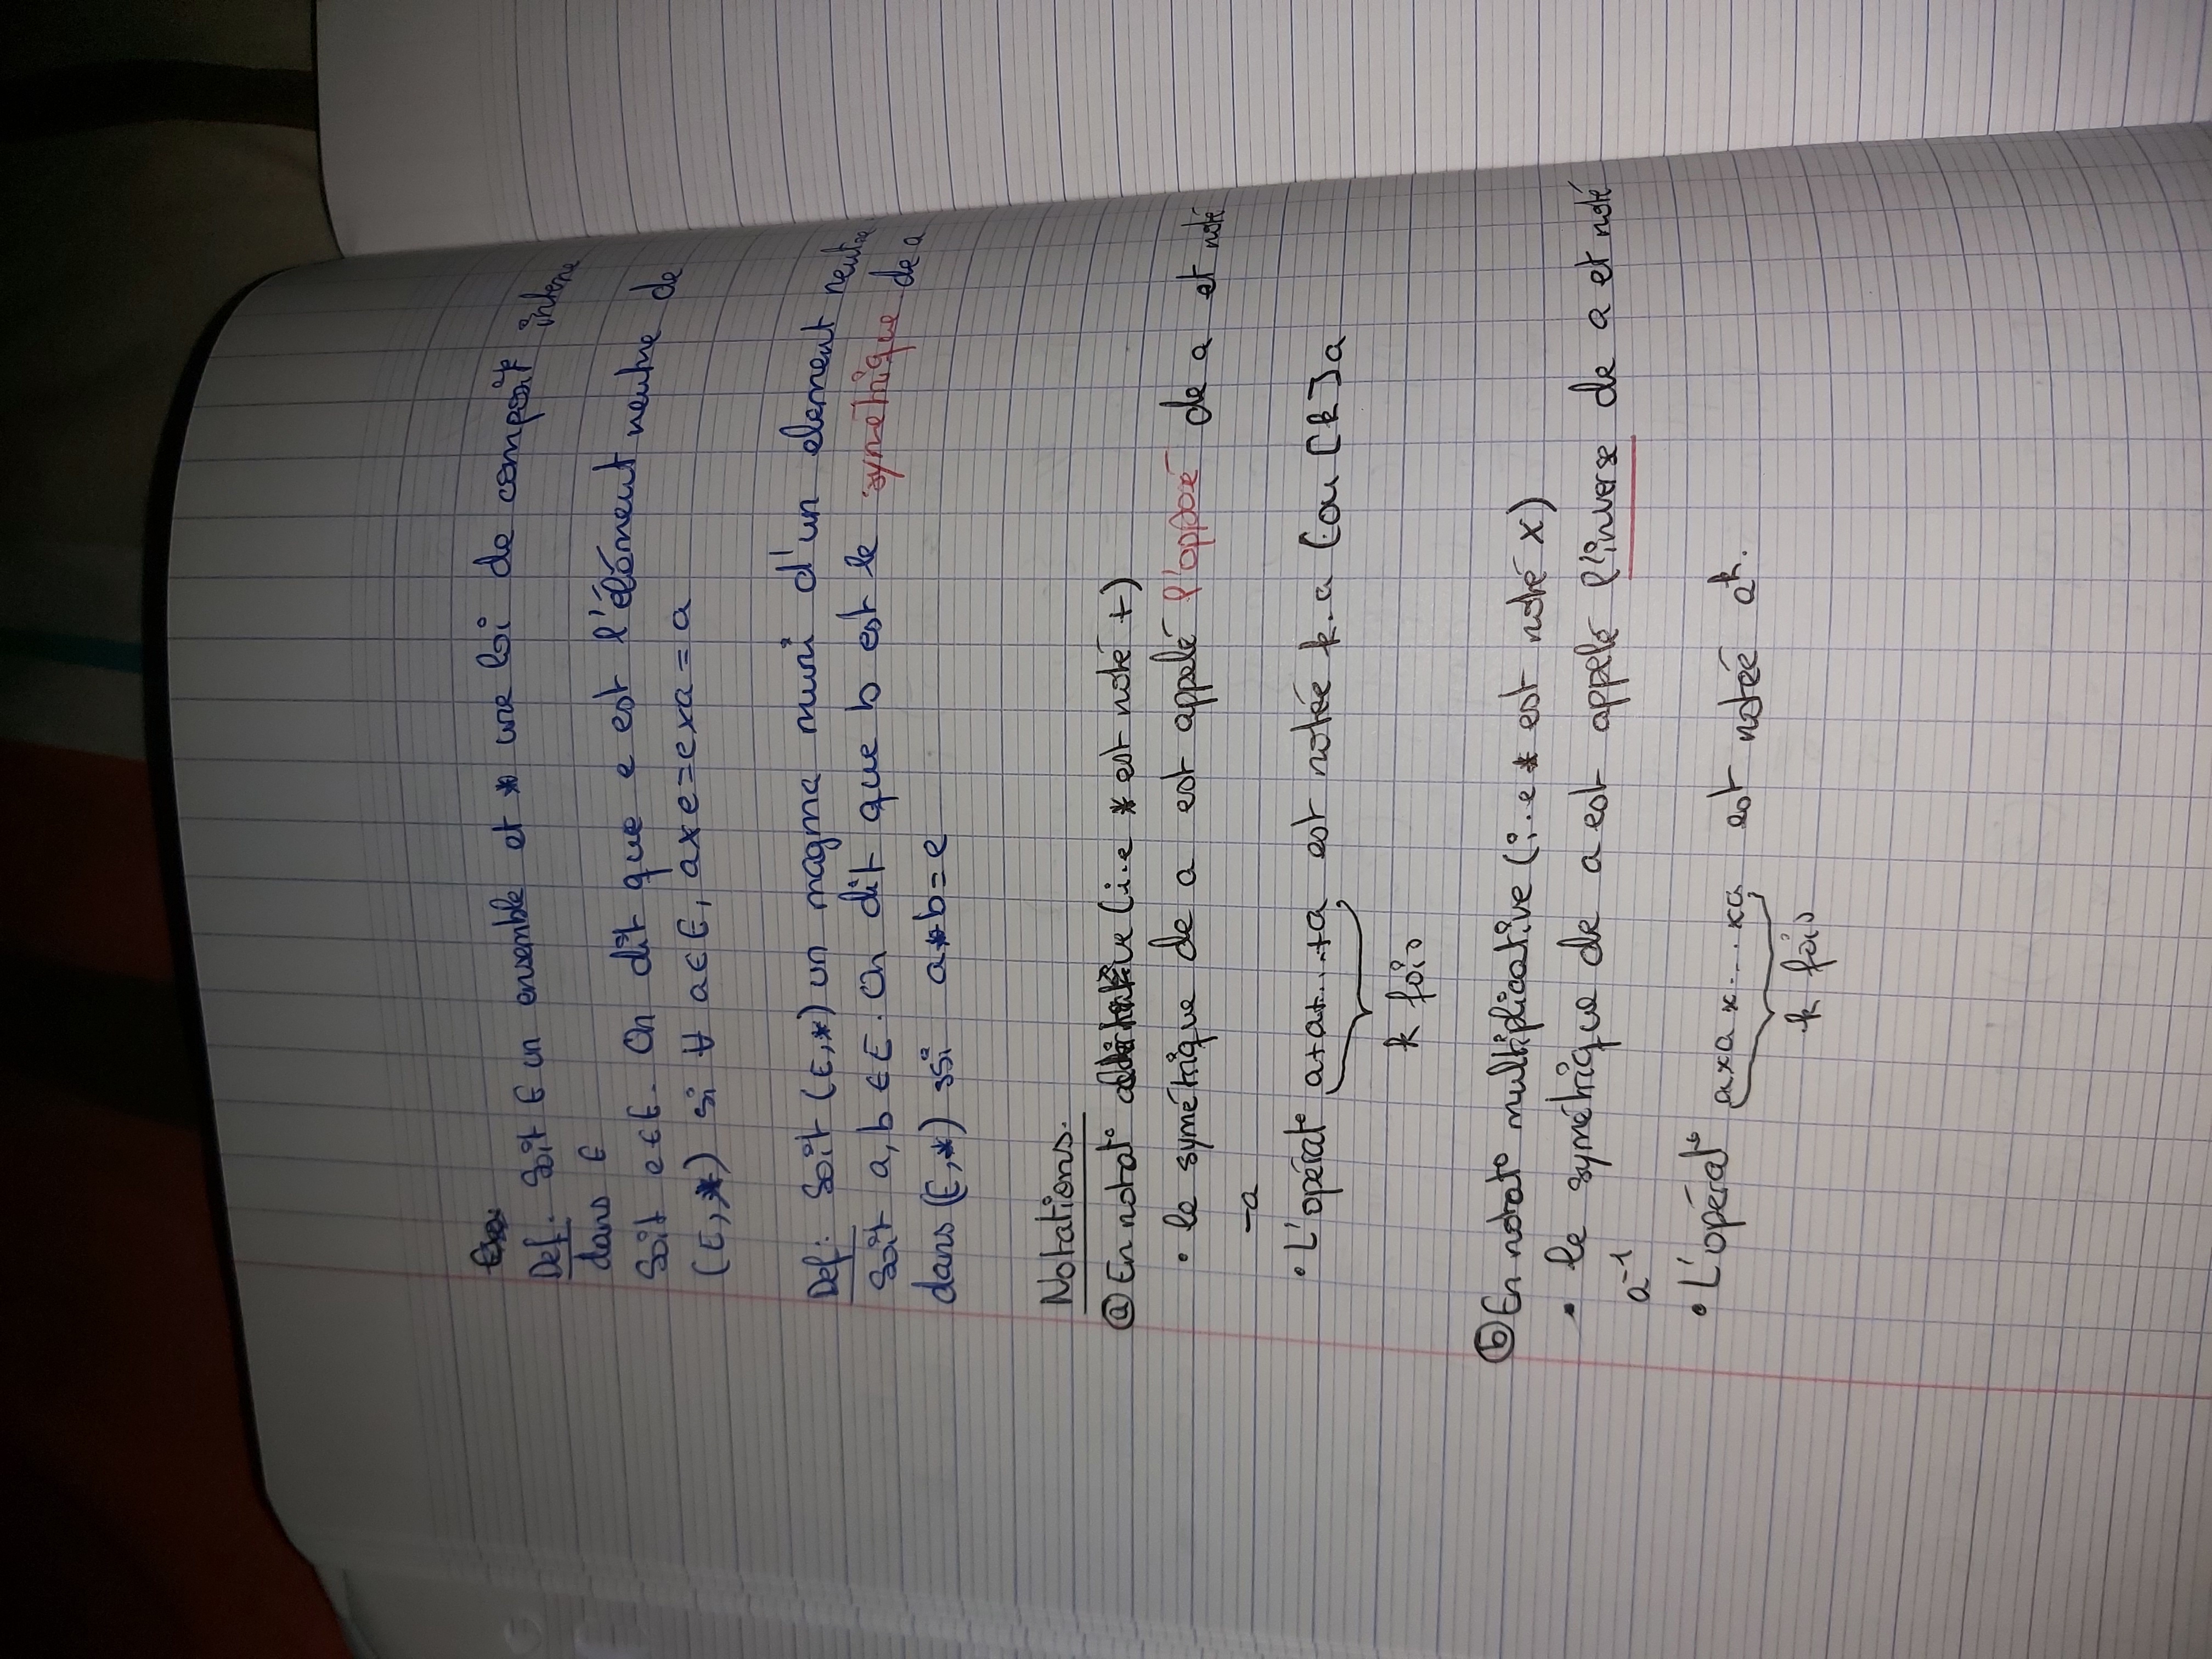 Def. Soit E un ensemble et * une loi de composit° interne
dans E
Soit e ∈ E. On dit que e est l'élément neutre de
(E, *) si ∀ a ∈ E, a x e = e x a = a
Def: Soit (E, *) un magma muni d'un element neutre
Soit a, b ∈ E. On dit que b est le symétrique de a
dans (E, *) ssi a * b = e
Notations.
ⓐ En notat° additive (i.e * est noté +)
• le symétrique de a est appelé l'opposé de a et noté
-a
• L'opérat° a+a+...+a est notée k.a (ou [k]a
k fois
ⓑ En notat° multiplicative (i.e * est noté x)
• le symétrique de a est appelé l'inverse de a et noté
a⁻¹
• L'opérat° a x a x ... x a est notée aᵏ.
k fois